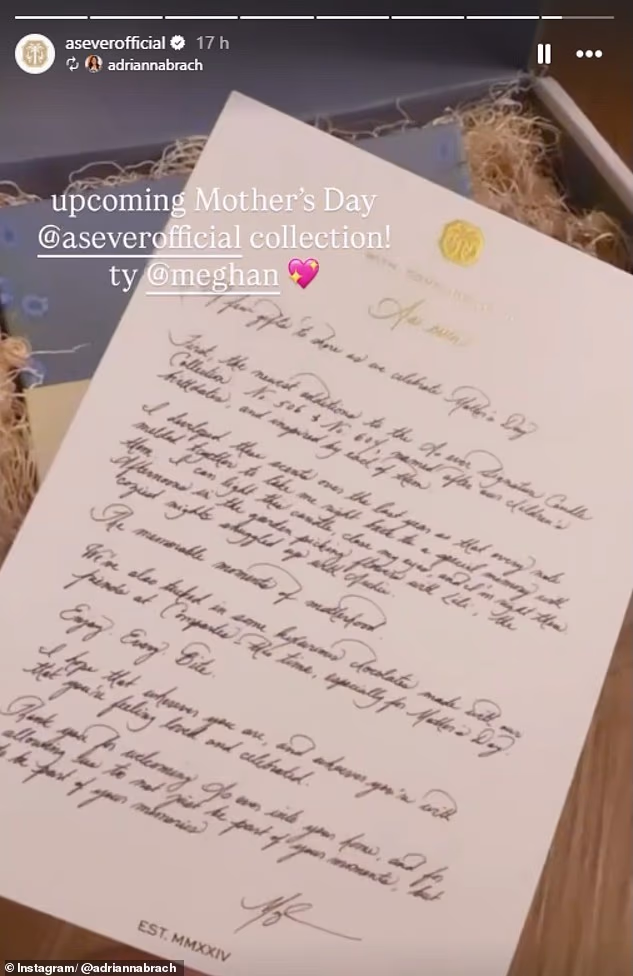 aseverofficial 17 h
adriannabrach
upcoming Mother's Day
@aseverofficial collection!
ty @meghan 💖
As ever
A few gifts to share as we celebrate Mother's Day
First, the newest additions to the As ever Signature Candle
Collection No. 506 & No. 604, named after our children's
birthdates, and inspired by each of them
I developed these scents over the last year so that every note
melded together to take me right back to a special memory with
them. I can light the candle, close my eyes and I'm right there.
Afternoons in the garden picking flowers with Lili, the
coziest nights snuggled up with Archie.
The memorable moments of motherhood.
We've also tucked in some luxurious chocolates made with our
friends at Compartés this time, especially for Mother's Day.
Enjoy Every Bite.
I hope that wherever you are, and whoever you're with
that you're feeling loved and celebrated.
Thank you for welcoming As ever into your home, and for
allowing to not just be part of your moments, but
to be part of your memories
EST. MMXXIV
© Instagram/ @adriannabrach